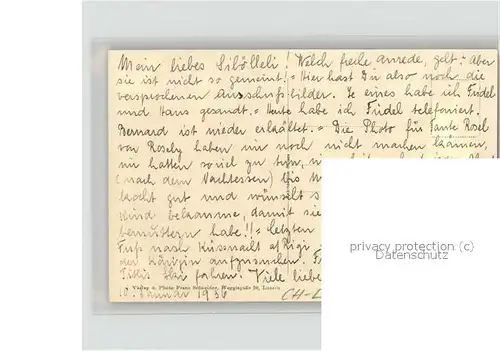 Mein liebes Sibölleli! Welch freche Anrede, gelt. Aber
sie ist nicht so gemeint! = Hier hast Du also noch die
versprochenen Ausschussbilder. Je eines habe ich Fridel
und Hans gesandt. = Heute habe ich Fridel telefoniert.
Bernard ist wieder erkältet. = Die Photo für Tante Rosel
von Rosely haben wir noch nicht machen können,
wir hatten soviel zu tun,
(nach dem Nachtessen) bis
kocht gut und wünscht
Kind bekomme, damit sie
bemuttern habe!! = letzten
Fuss nach Küssnacht a/Rigi
der Königin aufzusuchen.
Titlis Ski fahren. Viele liebe
Verlag u. Photo Franz Schneider, Weggisgasse 29, Luzern
10. Januar 1936
CH-L
privacy protection (c)
Datenschutz